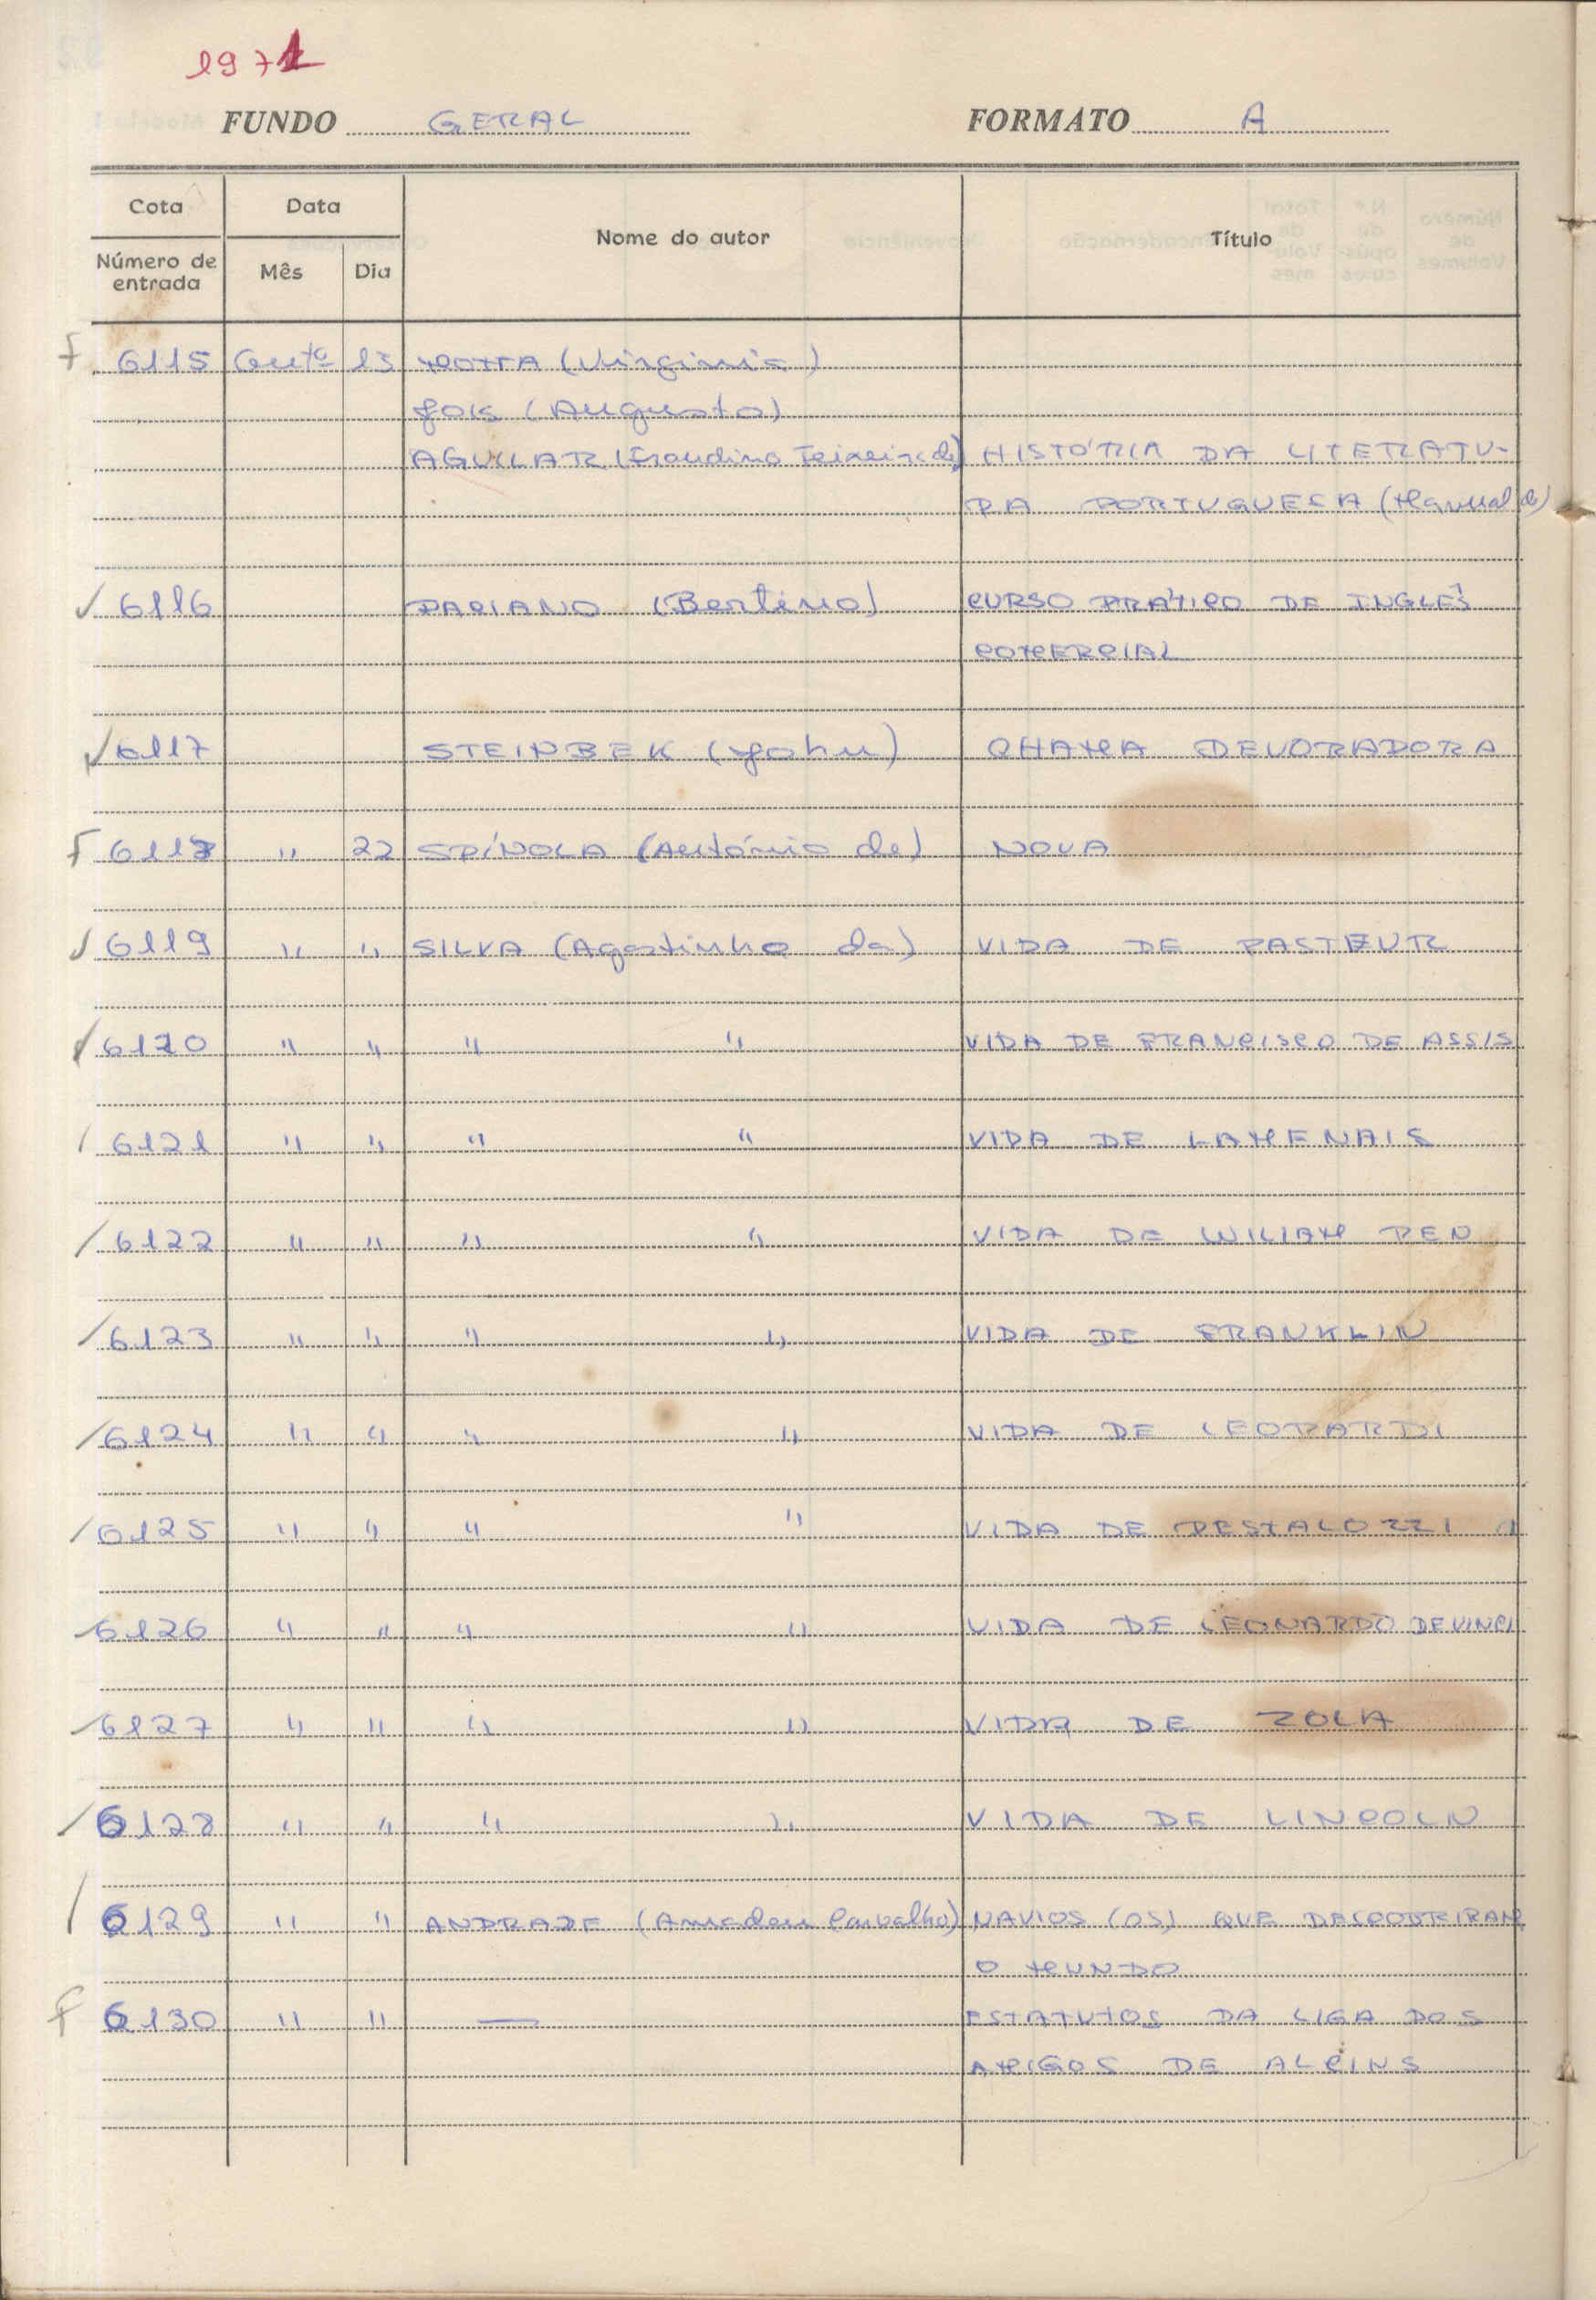 1971
FUNDO GERAL FORMATO A
Cota Data Nome do autor Título
Número de entrada Mês Dia
6115 Outº 13 MOTTA (Virginia)
Góis (Augusto)
AGUILAR (Fraudino Teixeira de) HISTÓRIA DA LITERATU-
RA PORTUGUESA (Manual de)
6116 PARIANO (Bertino) CURSO PRÁTICO DE INGLÊS
COMERCIAL
6117 STEINBEK (John) CHAMA DEVORADORA
6118 " 22 SPÍNOLA (António de) NOVA
6119 " " SILVA (Agostinho da) VIDA DE PASTEUR
6120 " " " " VIDA DE FRANCISCO DE ASSIS
6121 " " " " VIDA DE LAMENAIS
6122 " " " " VIDA DE WILIAM PEN
6123 " " " " VIDA DE FRANKLIN
6124 " " " " VIDA DE LEOPARDI
6125 " " " " VIDA DE PESTALOZZI
6126 " " " " VIDA DE LEONARDO DE VINCI
6127 " " " " VIDA DE ZOLA
6128 " " " " VIDA DE LINCOLN
6129 " " ANDRADE (Amadeu Carvalho) NAVIOS (OS) QUE DESCOBRIRAM
O MUNDO
6130 " " — ESTATUTOS DA LIGA DOS
AMIGOS DE ALCINS